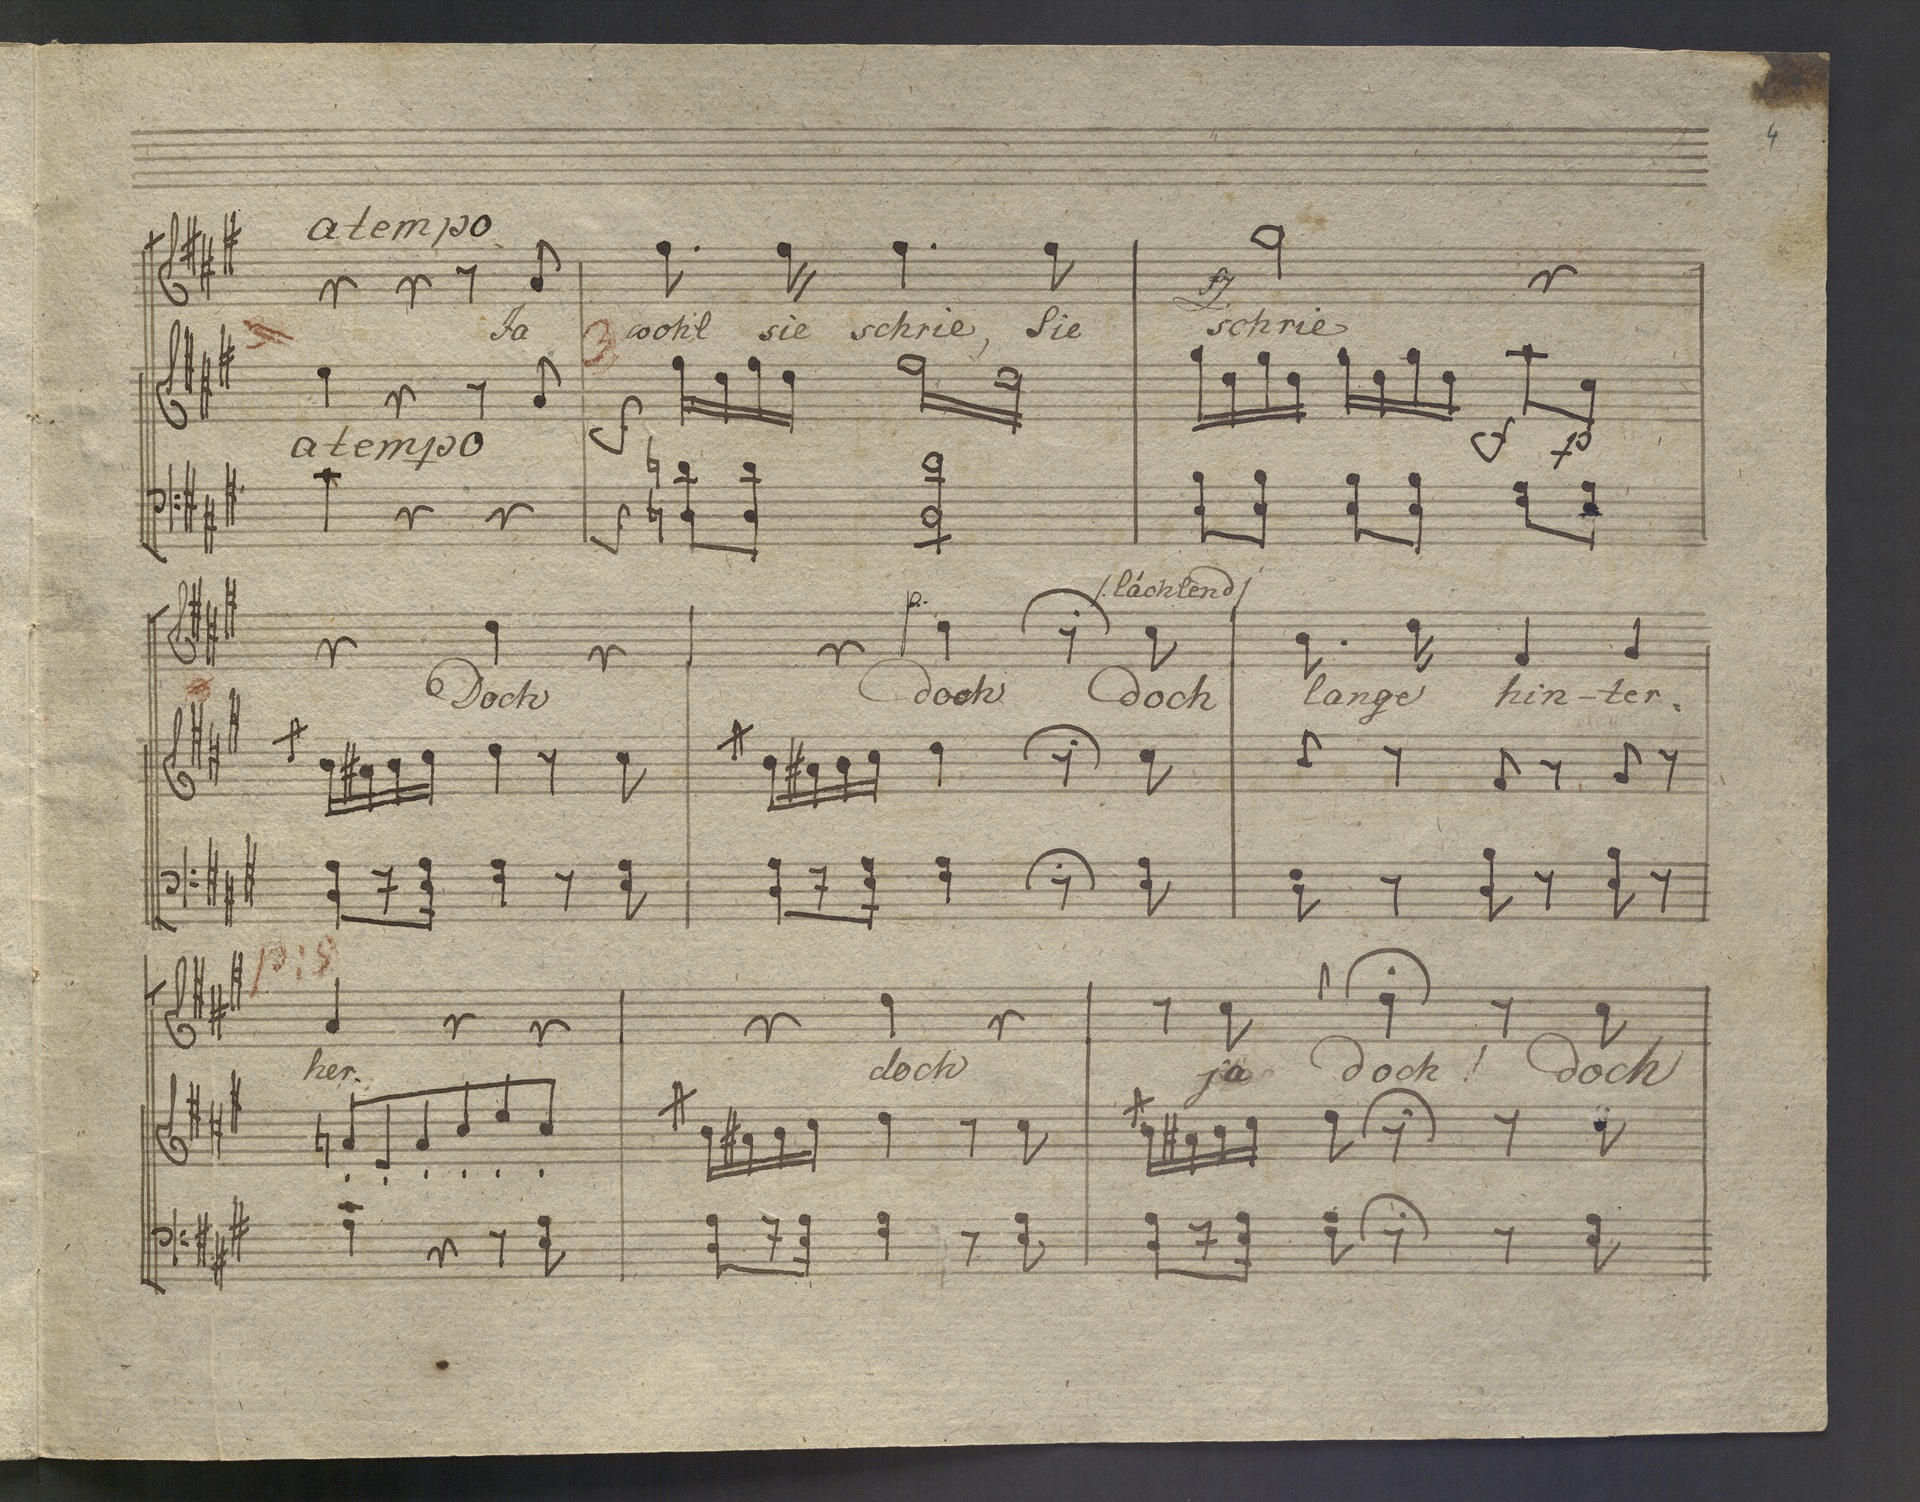 4
a tempo
Ja wohl sie schrie, Sie schrie
a tempo
p.
/: lächlend /
Doch doch doch lange hin-ter.
her. doch ja doch! doch